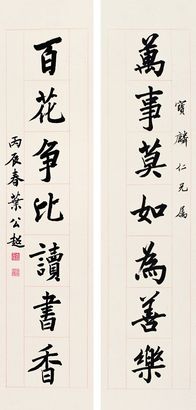 寶麟仁兄属
萬事莫如為善樂
百花争比讀書香
丙辰春葉公超